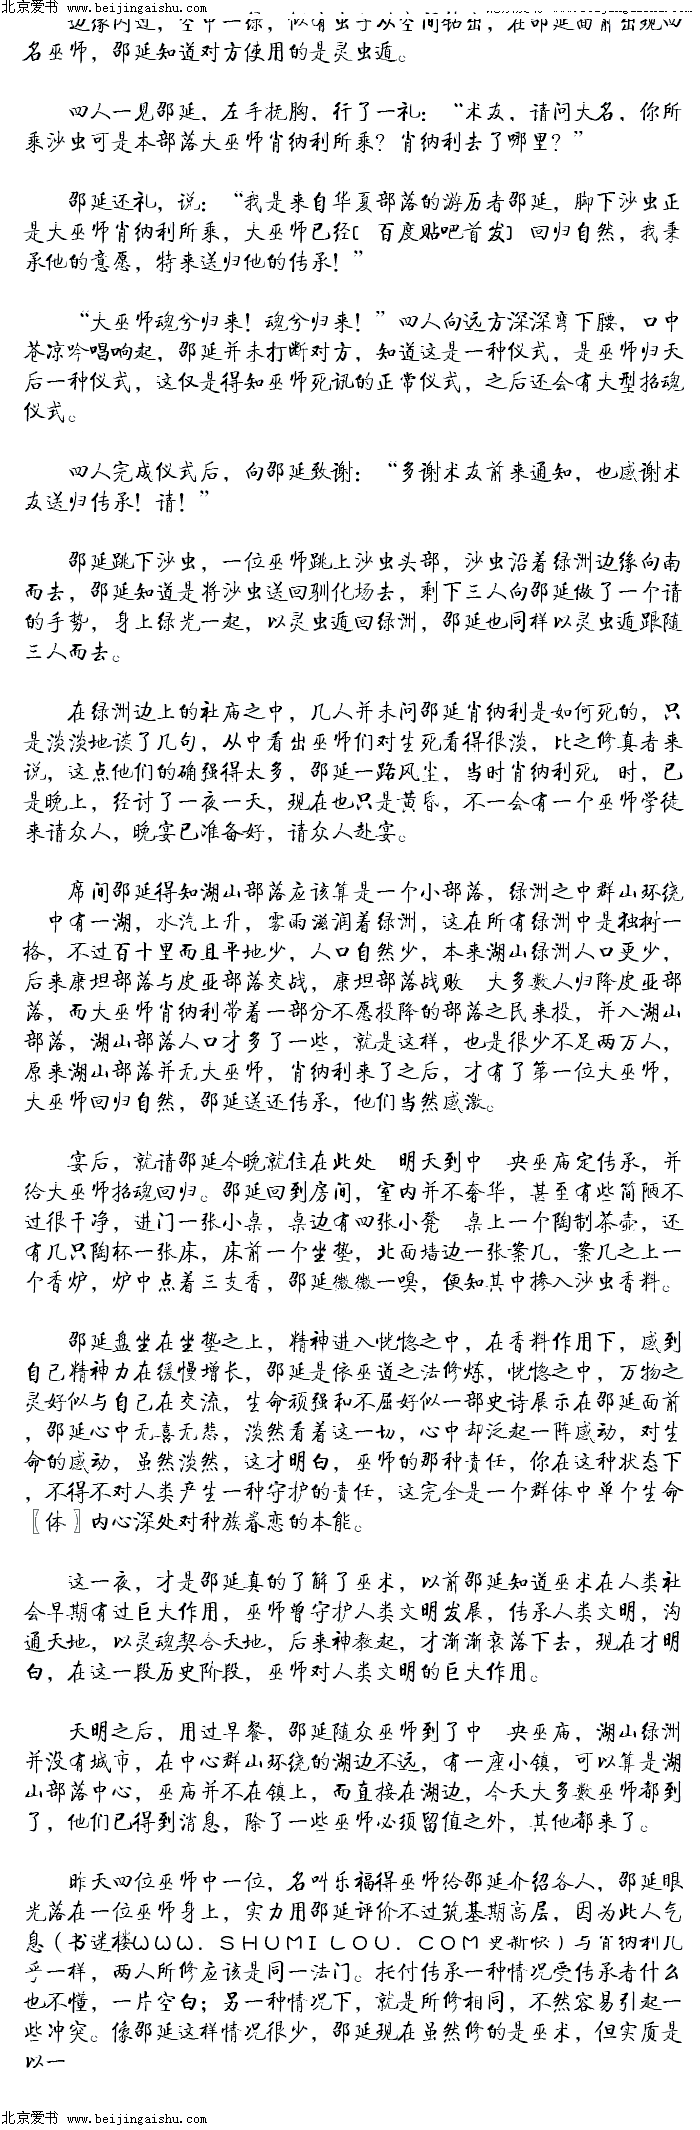 北京爱书 www.beijingaishu.com
边缘附近，空中一绿，似有虫子从空间钻出，在邵延面前出现四
名巫师，邵延知道对方使用的是灵虫遁。
四人一见邵延，左手抚胸，行了一礼：“术友，请问大名，你所
乘沙虫可是本部落大巫师肖纳利所乘？肖纳利去了哪里？”
邵延还礼，说：“我是来自华夏部落的游历者邵延，脚下沙虫正
是大巫师肖纳利所乘，大巫师已经〔 百度贴吧首发〕 回归自然，我秉
承他的意愿，特来送归他的传承！”
“大巫师魂兮归来！魂兮归来！”四人向远方深深弯下腰，口中
苍凉吟唱响起，邵延并未打断对方，知道这是一种仪式，是巫师归天
后一种仪式，这仅是得知巫师死讯的正常仪式，之后还会有大型招魂
仪式。
四人完成仪式后，向邵延致谢：“多谢术友前来通知，也感谢术
友送归传承！请！”
邵延跳下沙虫，一位巫师跳上沙虫头部，沙虫沿着绿洲边缘向南
而去，邵延知道是将沙虫送回驯化场去，剩下三人向邵延做了一个请
的手势，身上绿光一起，以灵虫遁回绿洲，邵延也同样以灵虫遁跟随
三人而去。
在绿洲边上的社庙之中，几人并未问邵延肖纳利是如何死的，只
是淡淡地谈了几句，从中看出巫师们对生死看得很淡，比之修真者来
说，这点他们的确强得太多，邵延一路风尘，当时肖纳利死，时，已
是晚上，经过了一夜一天，现在也只是黄昏，不一会有一个巫师学徒
来请众人，晚宴已准备好，请众人赴宴。
席间邵延得知湖山部落应该算是一个小部落，绿洲之中群山环绕
中有一湖，水汽上升，雾雨滋润着绿洲，这在所有绿洲中是独树一
格，不过百十里而且平地少，人口自然少，本来湖山绿洲人口更少，
后来康坦部落与皮亚部落交战，康坦部落战败 大多数人归降皮亚部
落，而大巫师肖纳利带着一部分不愿投降的部落之民来投，并入湖山
部落，湖山部落人口才多了一些，就是这样，也是很少不足两万人，
原来湖山部落并无大巫师，肖纳利来了之后，才有了第一位大巫师，
大巫师回归自然，邵延送还传承，他们当然感激。
宴后，就请邵延今晚就住在此处 明天到中 央巫庙定传承，并
给大巫师招魂回归。邵延回到房间，室内并不奢华，甚至有些简陋不
过很干净，进门一张小桌，桌边有四张小凳 桌上一个陶制茶壶，还
有几只陶杯一张床，床前一个坐垫，北面墙边一张案几，案几之上一
个香炉，炉中点着三支香，邵延微微一嗅，便知其中掺入沙虫香料。
邵延盘坐在坐垫之上，精神进入恍惚之中，在香料作用下，感到
自己精神力在缓慢增长，邵延是依巫道之法修炼，恍惚之中，万物之
灵好似与自己在交流，生命顽强和不屈好似一部史诗展示在邵延面前
，邵延心中无喜无悲，淡然看着这一切，心中却泛起一阵感动，对生
命的感动，虽然淡然，这才明白，巫师的那种责任，你在这种状态下
，不得不对人类产生一种守护的责任，这完全是一个群体中单个生命
〖体〗内心深处对种族眷恋的本能。
这一夜，才是邵延真的了解了巫术，以前邵延知道巫术在人类社
会早期有过巨大作用，巫师曾守护人类文明发展，传承人类文明，沟
通天地，以灵魂契合天地，后来神教起，才渐渐衰落下去，现在才明
白，在这一段历史阶段，巫师对人类文明的巨大作用。
天明之后，用过早餐，邵延随众巫师到了中 央巫庙，湖山绿洲
并没有城市，在中心群山环绕的湖边不远，有一座小镇，可以算是湖
山部落中心，巫庙并不在镇上，而直接在湖边，今天大多数巫师都到
了，他们已得到消息，除了一些巫师必须留值之外，其他都来了。
昨天四位巫师中一位，名叫乐福得巫师给邵延介绍各人，邵延眼
光落在一位巫师身上，实力用邵延评价不过筑基期高层，因为此人气
息（书迷楼ＷＷＷ．ＳＨＵＭＩＬＯＵ．ＣＯＭ更新快）与肖纳利几
乎一样，两人所修应该是同一法门。托付传承一种情况受传承者什么
也不懂，一片空白；另一种情况下，就是所修相同，不然容易引起一
些冲突。像邵延这样情况很少，邵延现在虽然修的是巫术，但实质是
以一
北京爱书 www.beijingaishu.com